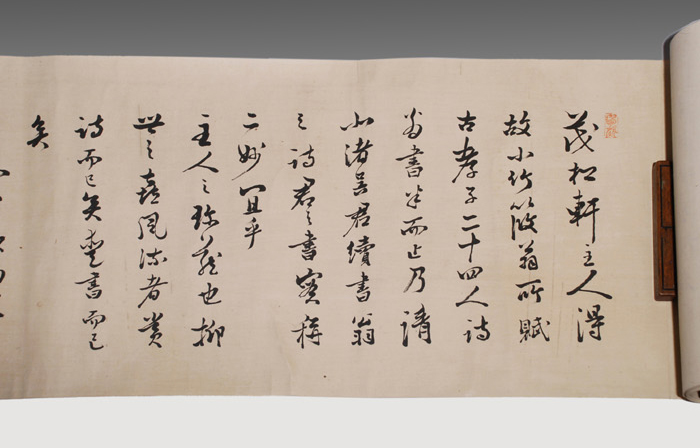 茂松軒主人得
故小竹筱翁所賦
古孝子二十四人詩
翁書半而止乃請
小渚吴君續書翁
之詩君之書實稱
二妙宜乎
主人之珍藏也抑
世之喜風流者賞
詩而已矣愛書而已
矣